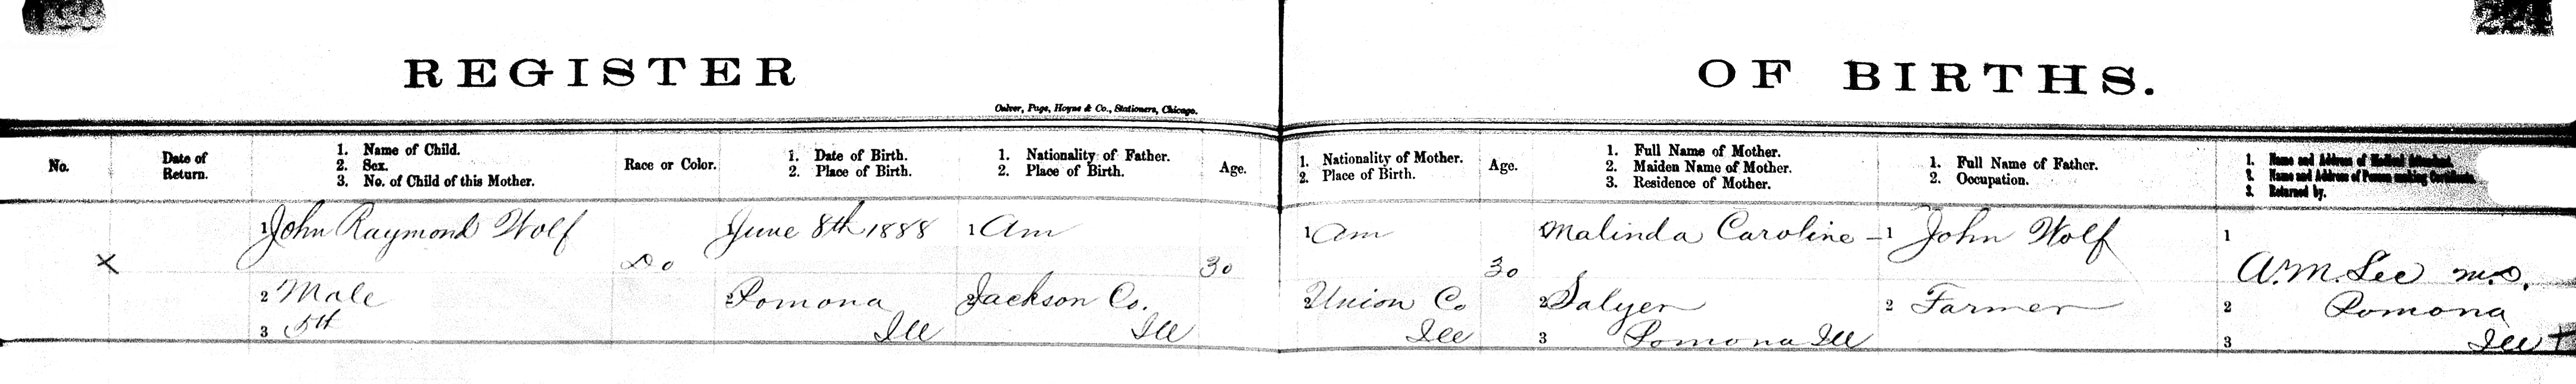 REGISTER OF BIRTHS.
Culver, Page, Hoyne & Co., Stationers, Chicago.
No.
Date of
Return.
1. Name of Child.
2. Sex.
3. No. of Child of this Mother.
Race or Color.
1. Date of Birth.
2. Place of Birth.
1. Nationality of Father.
2. Place of Birth.
Age.
1. Nationality of Mother.
2. Place of Birth.
Age.
1. Full Name of Mother.
2. Maiden Name of Mother.
3. Residence of Mother.
1. Full Name of Father.
2. Occupation.
1. Name and Address of Medical Attendant.
2. Name and Address of Person making Certificate.
3. Returned by.
x
1 John Raymond Wolf
2 Male
3 5th
Do
1 June 8th 1888
2 Pomona
Ill
1 Am
2 Jackson Co.
Ill
30
1 Am
2 Union Co
Ill
30
1 Malinda Caroline –
2 Salyer
3 Pomona Ill
1 John Wolf
2 Farmer
1
A. M. Lee M.D.
2 Pomona
3 Ill +